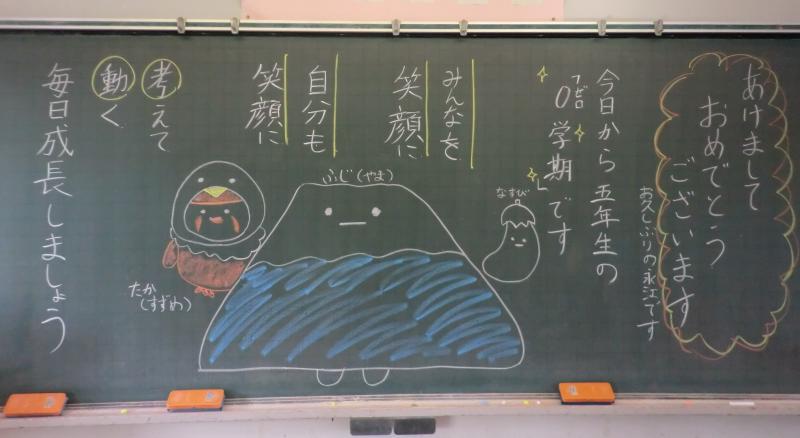 あけまして
おめでとう
ございます
お久しぶりの永江です
今日から五年生の
「0学期」です
ゼロ
みんなを
笑顔に
自分も
笑顔に
考えて
動く
毎日成長しましょう
ふじ(やま)
なすび
たか
(すずめ)